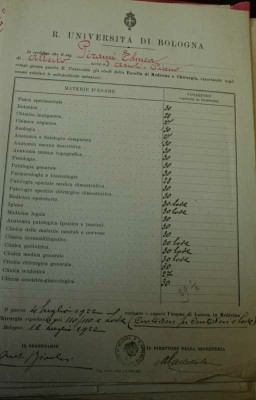 R. UNIVERSITÀ DI BOLOGNA
Si certifica che il sig. Pirami Edmea
di Alberto nato a Ascoli Piceno
compì presso questa R. Università gli studi della Facoltà di Medicina e Chirurgia, riportando negli
esami relativi le sottosegnate votazioni:
MATERIE D'ESAME VOTAZIONE
Fisica sperimentale 30
Botanica 30
Chimica inorganica 28
Chimica organica
Zoologia 30
Anatomia e fisiologia comparata
Anatomia umana descrittiva 30
Anatomia umana topografica 30
Fisiologia 30
Patologia generale 30
Farmacologia e tossicologia 30
Patologia speciale medica dimostrativa 28
Patologia speciale chirurgica dimostrativa 30
Medicina operatoria 30
Igiene 30 lode
Medicina legale 30
Anatomia patologica 30 lode
Clinica delle malattie mentali e nervose 30
Clinica dermosifilopatica 30 lode
Clinica pediatrica 30 lode
Clinica medica generale 30 lode
Clinica chirurgica generale 30
Clinica oculistica 27
Clinica ostetrico-ginecologica 30
Il giorno 4 luglio 1922 sostenne e superò l'esame di Laurea in Medicina
e Chirurgia riportando 110/110 e lode
Bologna, 12 luglio 1922
IL SEGRETARIO IL DIRETTORE DELLA SEGRETERIA